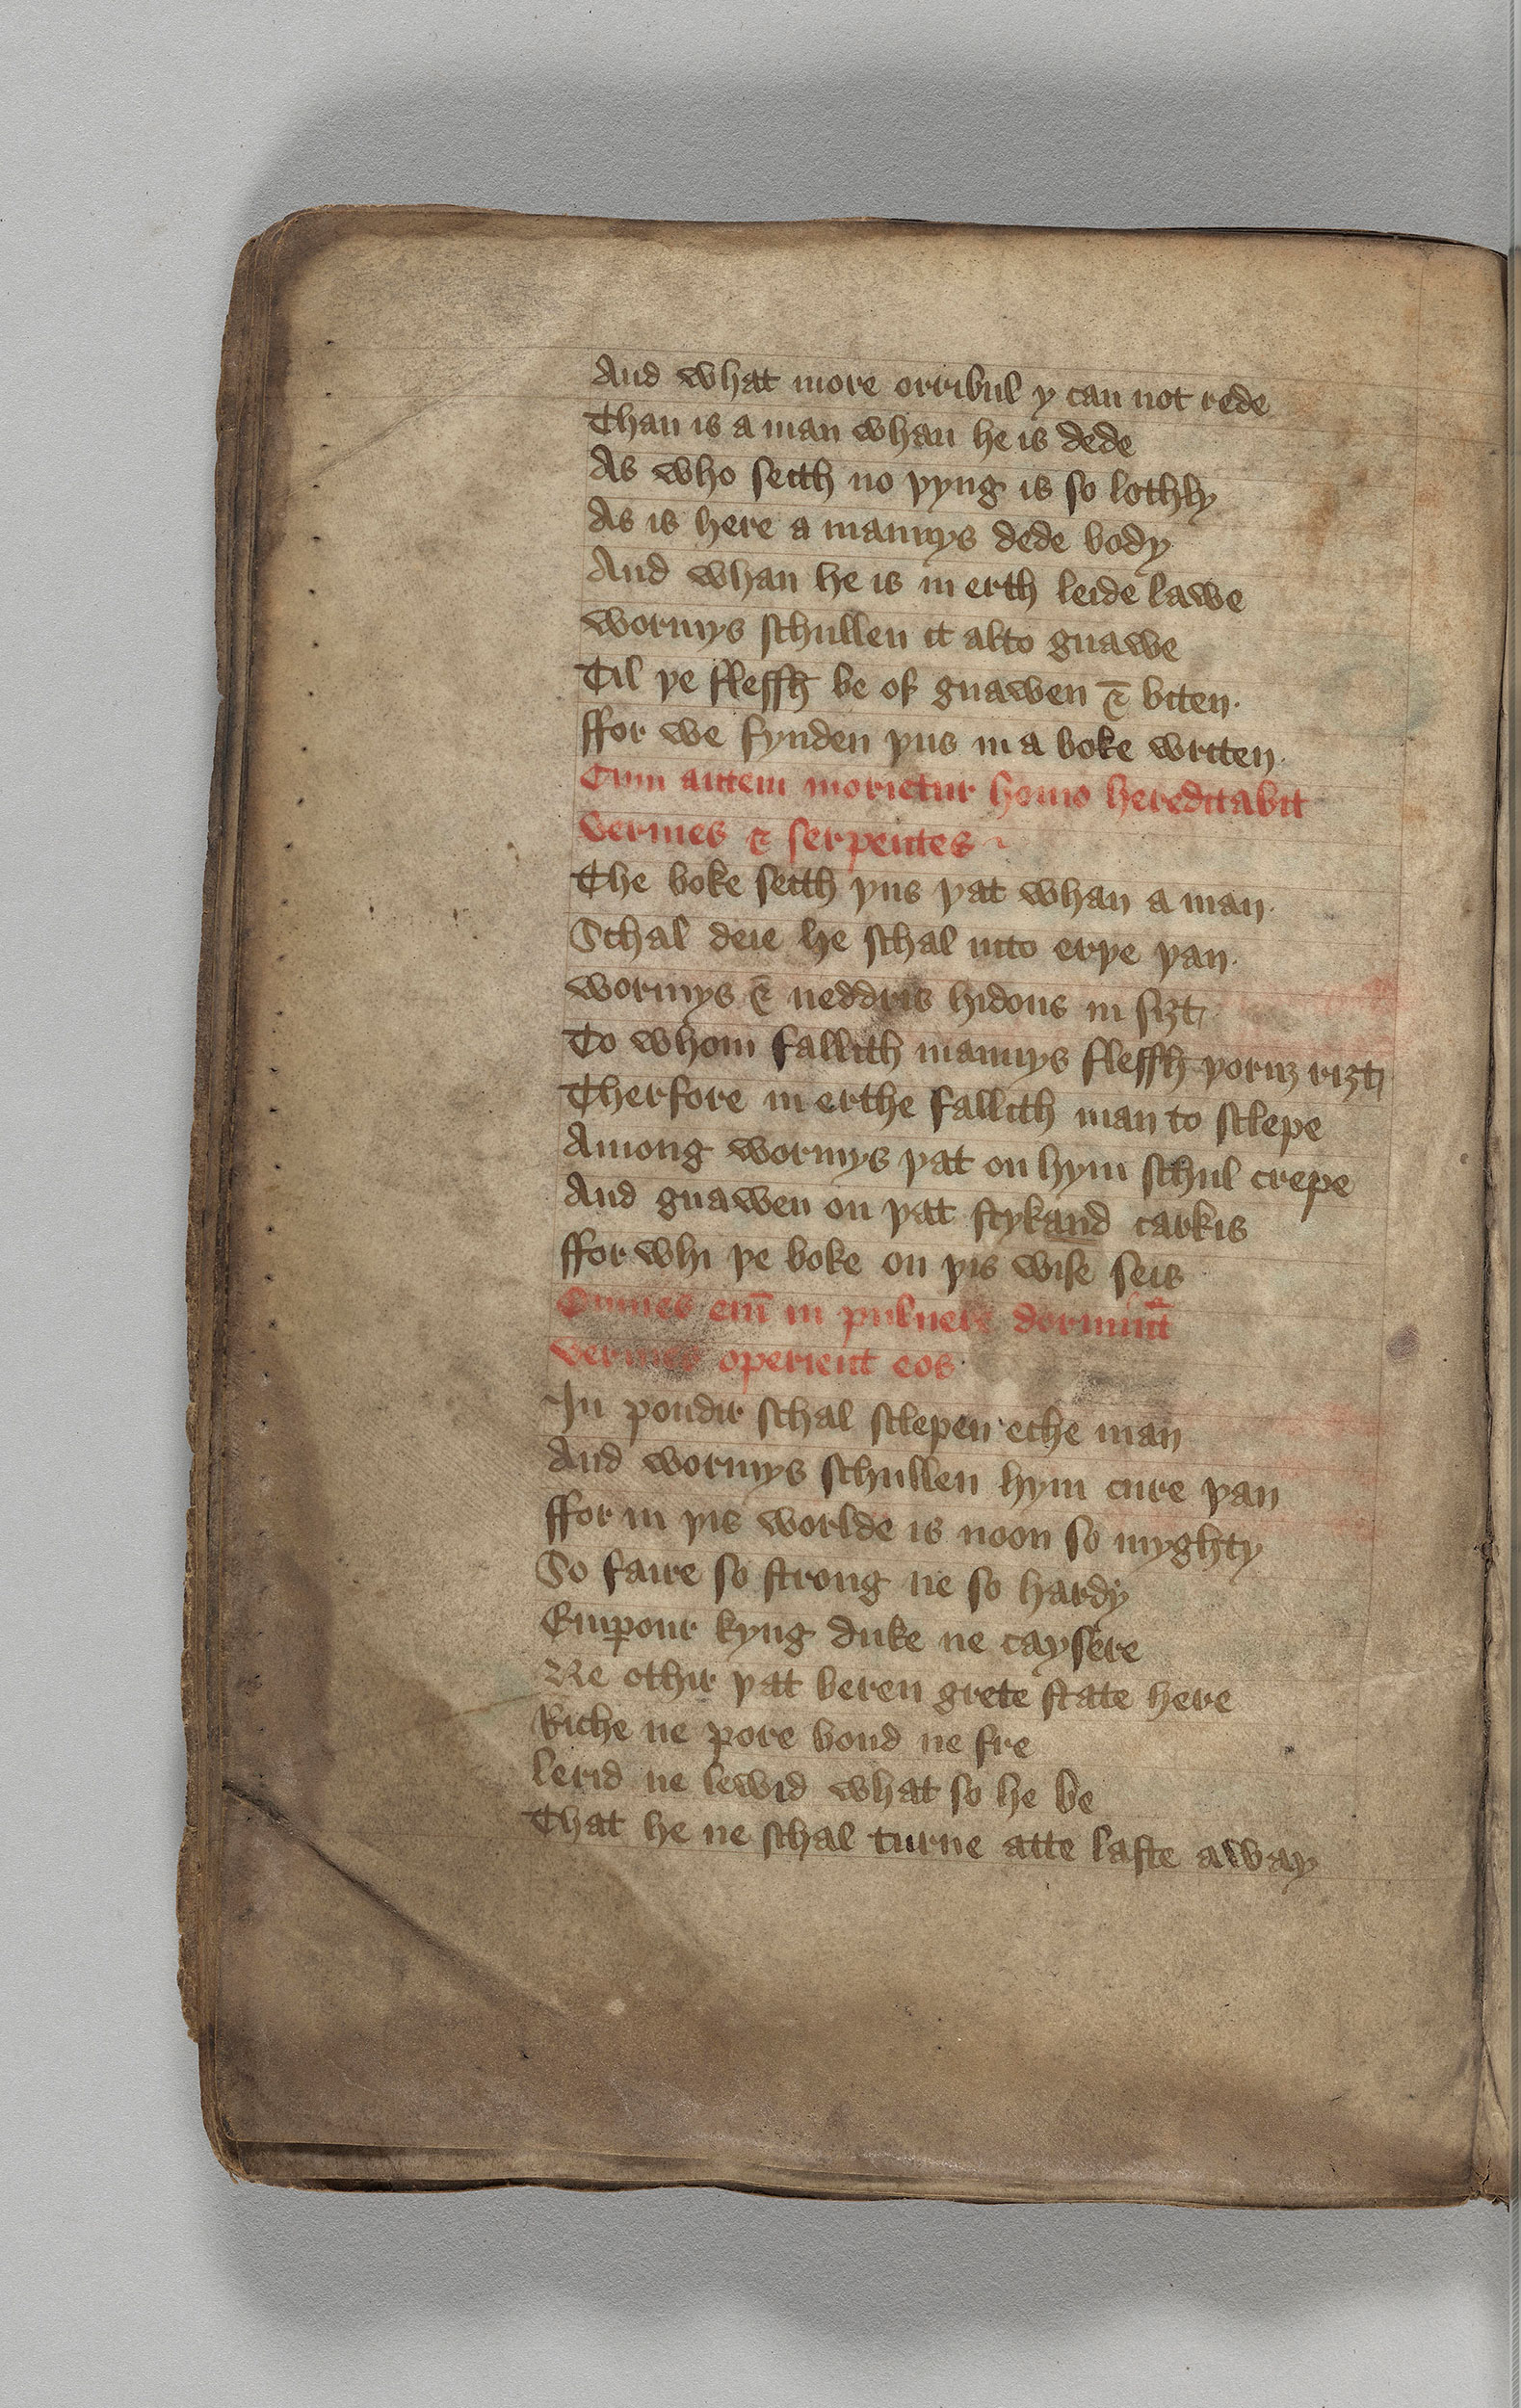 And what more orribul y can not rede
Than is a man whan he is dede
As who seith no þyng is so lothly
As is here a mannys dede body
And whan he is in erth leide lawe
wormys schullen it alto gnawe
Til þe flessh be of gnawen & biten·
ffor we fynden þus in a boke writen·
Cum autem morietur homo hereditabit
vermes & serpentes
The boke seith þus þat whan a man·
Schal deie he schal into erþe þan·
wormys & neddris hidous in siȝt
To whom fallith mannys flessh þoruȝ riȝt
Therfore in erthe fallith man to sclepe
Among wormys þat on hym schul crepe
And gnawen on þat stykand carkis
ffor whi þe boke on þis wise seis
Omnes eni̅ in puluere dormiu̅t
vermes operient eos·
In poudir schal sclepen eche man
And wormys schullen hym cure þan
ffor in þis worlde is noon so myghty
So faire so strong ne so hardy
Emꝑour kyng duke ne caysere
Ne othir þat beren grete state here
Riche ne pore bond ne fre
lerid ne lewid what so he be
That he ne schal turne atte laste away